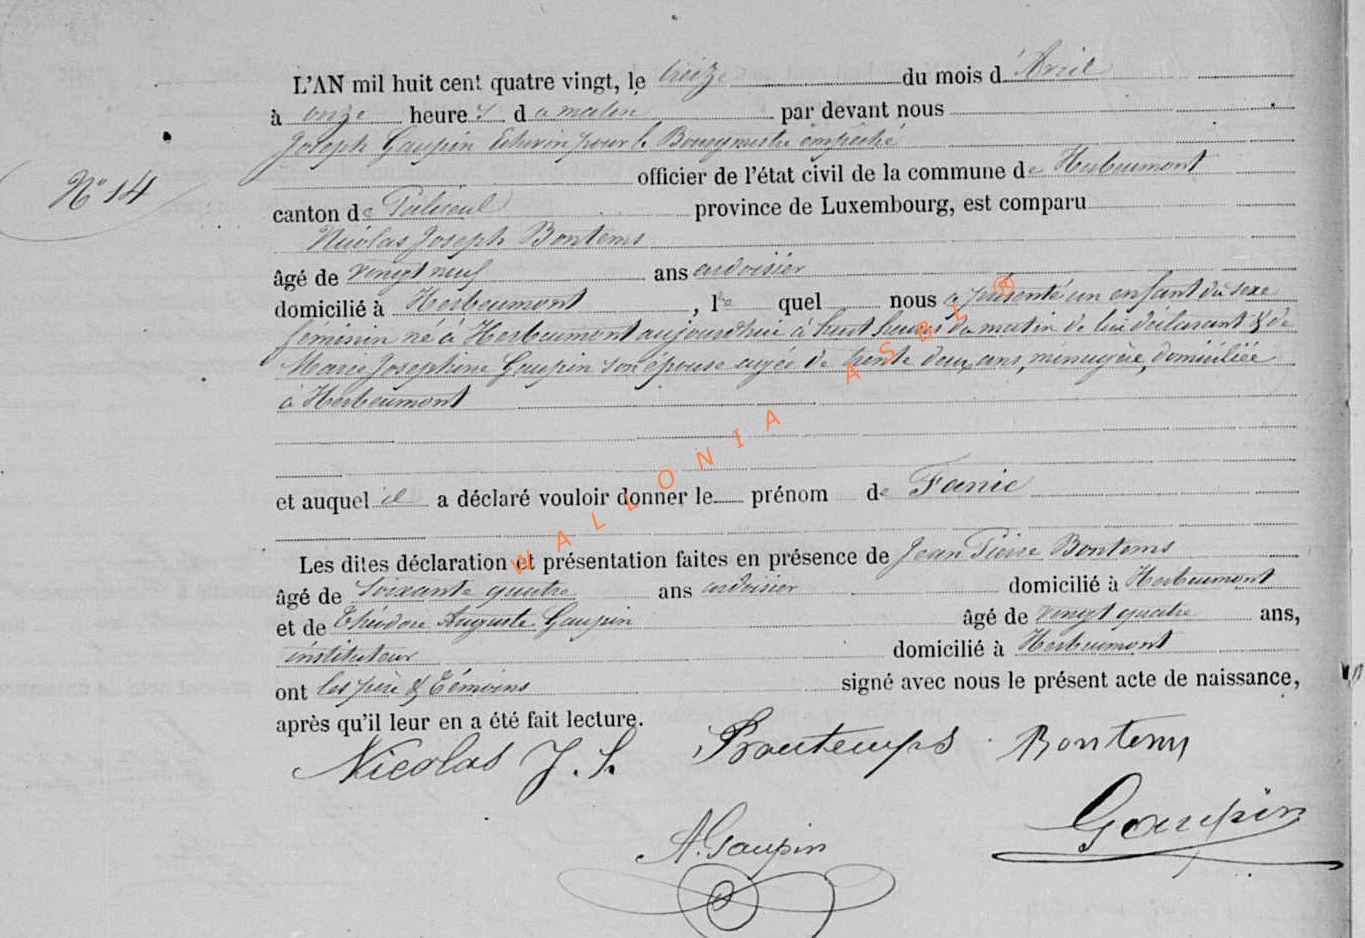 L'AN mil huit cent quatre vingt, le treize du mois d'Avril
à onze heures du matin par devant nous
Joseph Gaupin Echevin pour le Bourgmestre empêché
N° 14
officier de l'état civil de la commune de Herbeumont
canton de Paliseul province de Luxembourg, est comparu
Nicolas Joseph Bontems
âgé de vingt neuf ans ardoisier
domicilié à Herbeumont, lequel nous a présenté un enfant du sexe
féminin né à Herbeumont aujourd'hui à huit heures du matin de lui déclarant & de
Marie Josephine Gaupin son épouse agée de trente deux ans, ménagère, domiciliée
à Herbeumont
et auquel il a déclaré vouloir donner le prénom de Fanie
Les dites déclaration et présentation faites en présence de Jean Pierre Bontems
âgé de soixante quatre ans ardoisier domicilié à Herbeumont
et de Théodore Auguste Gaupin âgé de vingt quatre ans,
instituteur domicilié à Herbeumont
ont les père & témoins signé avec nous le présent acte de naissance,
après qu'il leur en a été fait lecture.
Nicolas J. Bontemps Bontems
A. Gaupin Gaupin
WALLONIA ASBL ®